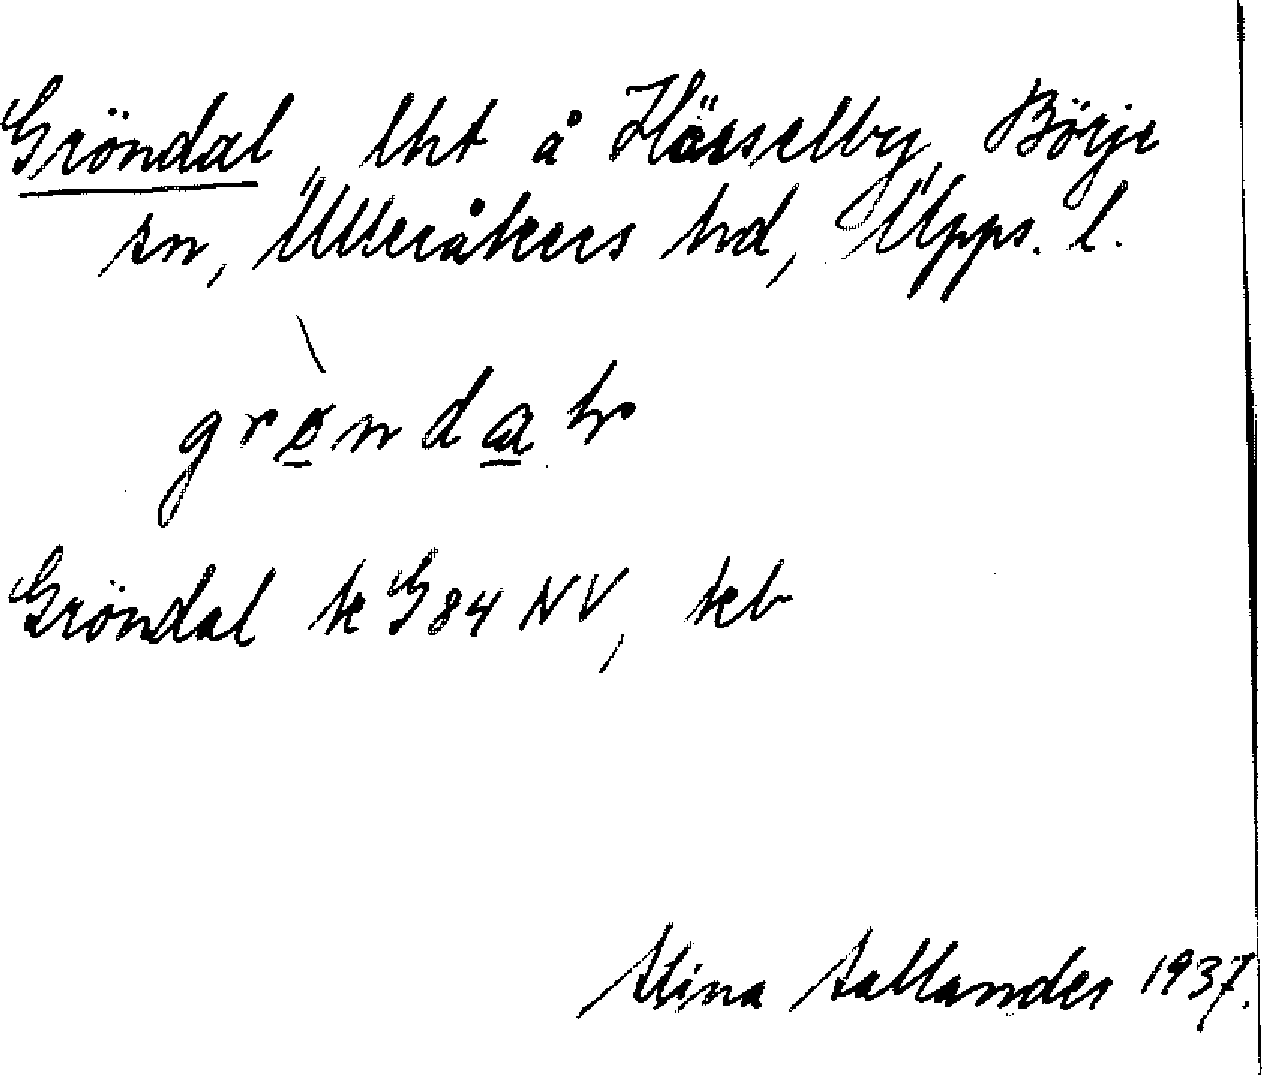 Gröndal, lht å Hässelby, Börje
sn, Ulleråkers hd, Upps. l.
grø̀nda
Gröndal k G 84 NV, kb
Stina Sallander 1937.